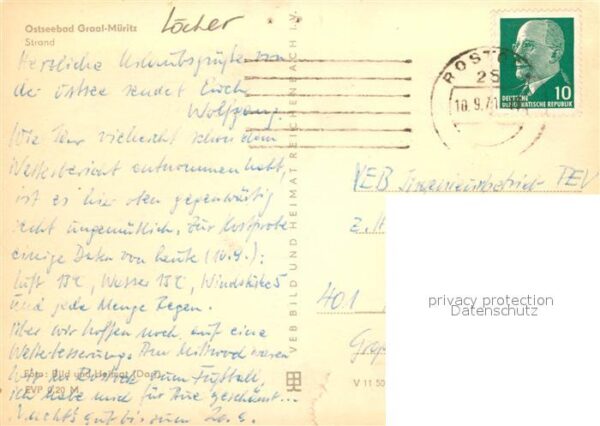 Ostseebad Graal-Müritz
Strand
Löcher
Herzliche Urlaubsgrüße von
der Ostsee sendet Euch
Wolfgang
Wie Ihr vielleicht schon dem
Wetterbericht entnommen habt,
ist es hier oben gegenwärtig
recht ungemütlich. Zur Kostprobe
einige Daten von heute (10.9.):
Luft 13°C, Wasser 13°C, Windstärke 5
und jede Menge Regen.
Aber wir hoffen noch auf eine
Wetterbesserung. Am Mittwoch waren
wir in Rostock zum Fußball,
ich habe mich für Aue geschämt...
Macht's gut bis zum 20.9.
Foto: Bild und Heimat (Dag)
EVP 0,20 M
VEB BILD UND HEIMAT REICHENBACH I. V.
V 11 50
ROSTO
25
10.9.71
10
DEUTSCHE
DEMOKRATISCHE REPUBLIK
VEB Ingenieurbetrieb PEV
z. H
401
privacy protection
Datenschutz